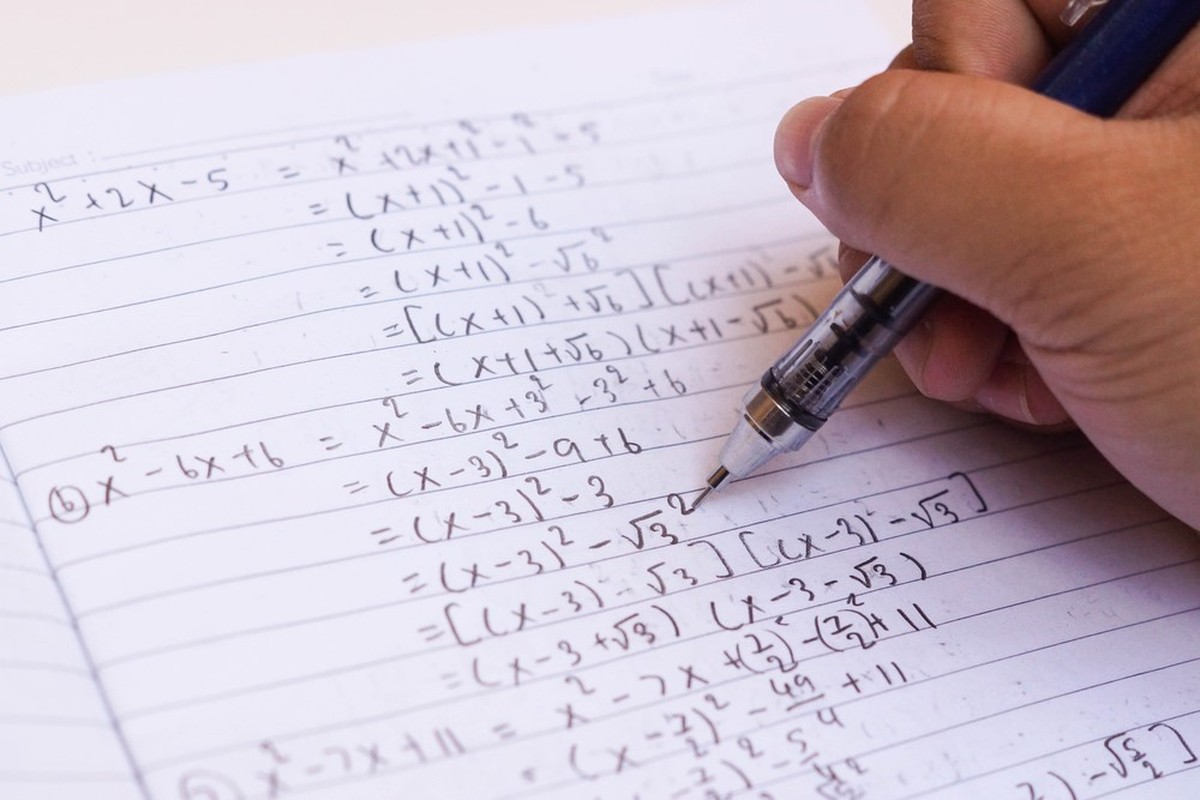 Subject :
x² + 2x - 5 = x² + 2x + 1² - 1² - 5
= (x+1)² - 1 - 5
= (x+1)² - 6
= (x+1)² - √6²
= [(x+1)² + √6] [(x+1)² - √6
= (x+1+√6) (x+1-√6)
(b) x² - 6x + 6 = x² - 6x + 3² - 3² + 6
= (x-3)² - 9 + 6
= (x-3)² - 3
= (x-3)² - √3²
= [(x-3) - √3] [(x-3) - √3]
= (x-3+√3) (x-3-√3)
x² - 7x + 11 = x² - 7x + (7/2)² - (7/2)² + 11
(x - 7/2)² - 49/4 + 11
7/2)² - 5/4
) - √5/2]